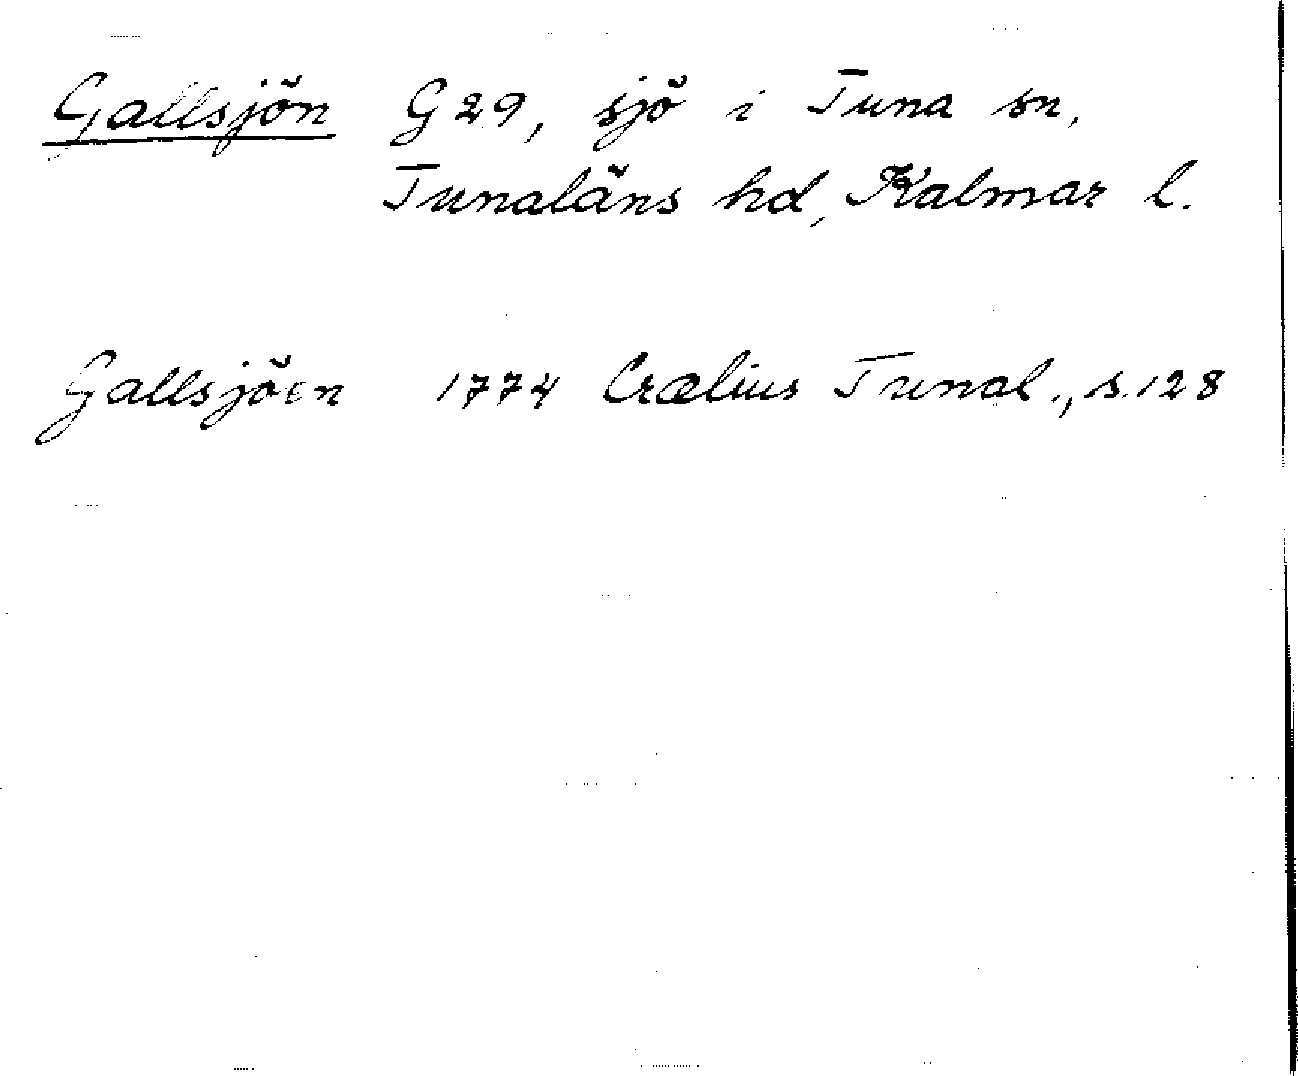 Gallsjön G 29, sjö i Tuna sn,
Tunaläns hd, Kalmar l.
Gallsjöen 1774 Crælius Tunal., s. 128